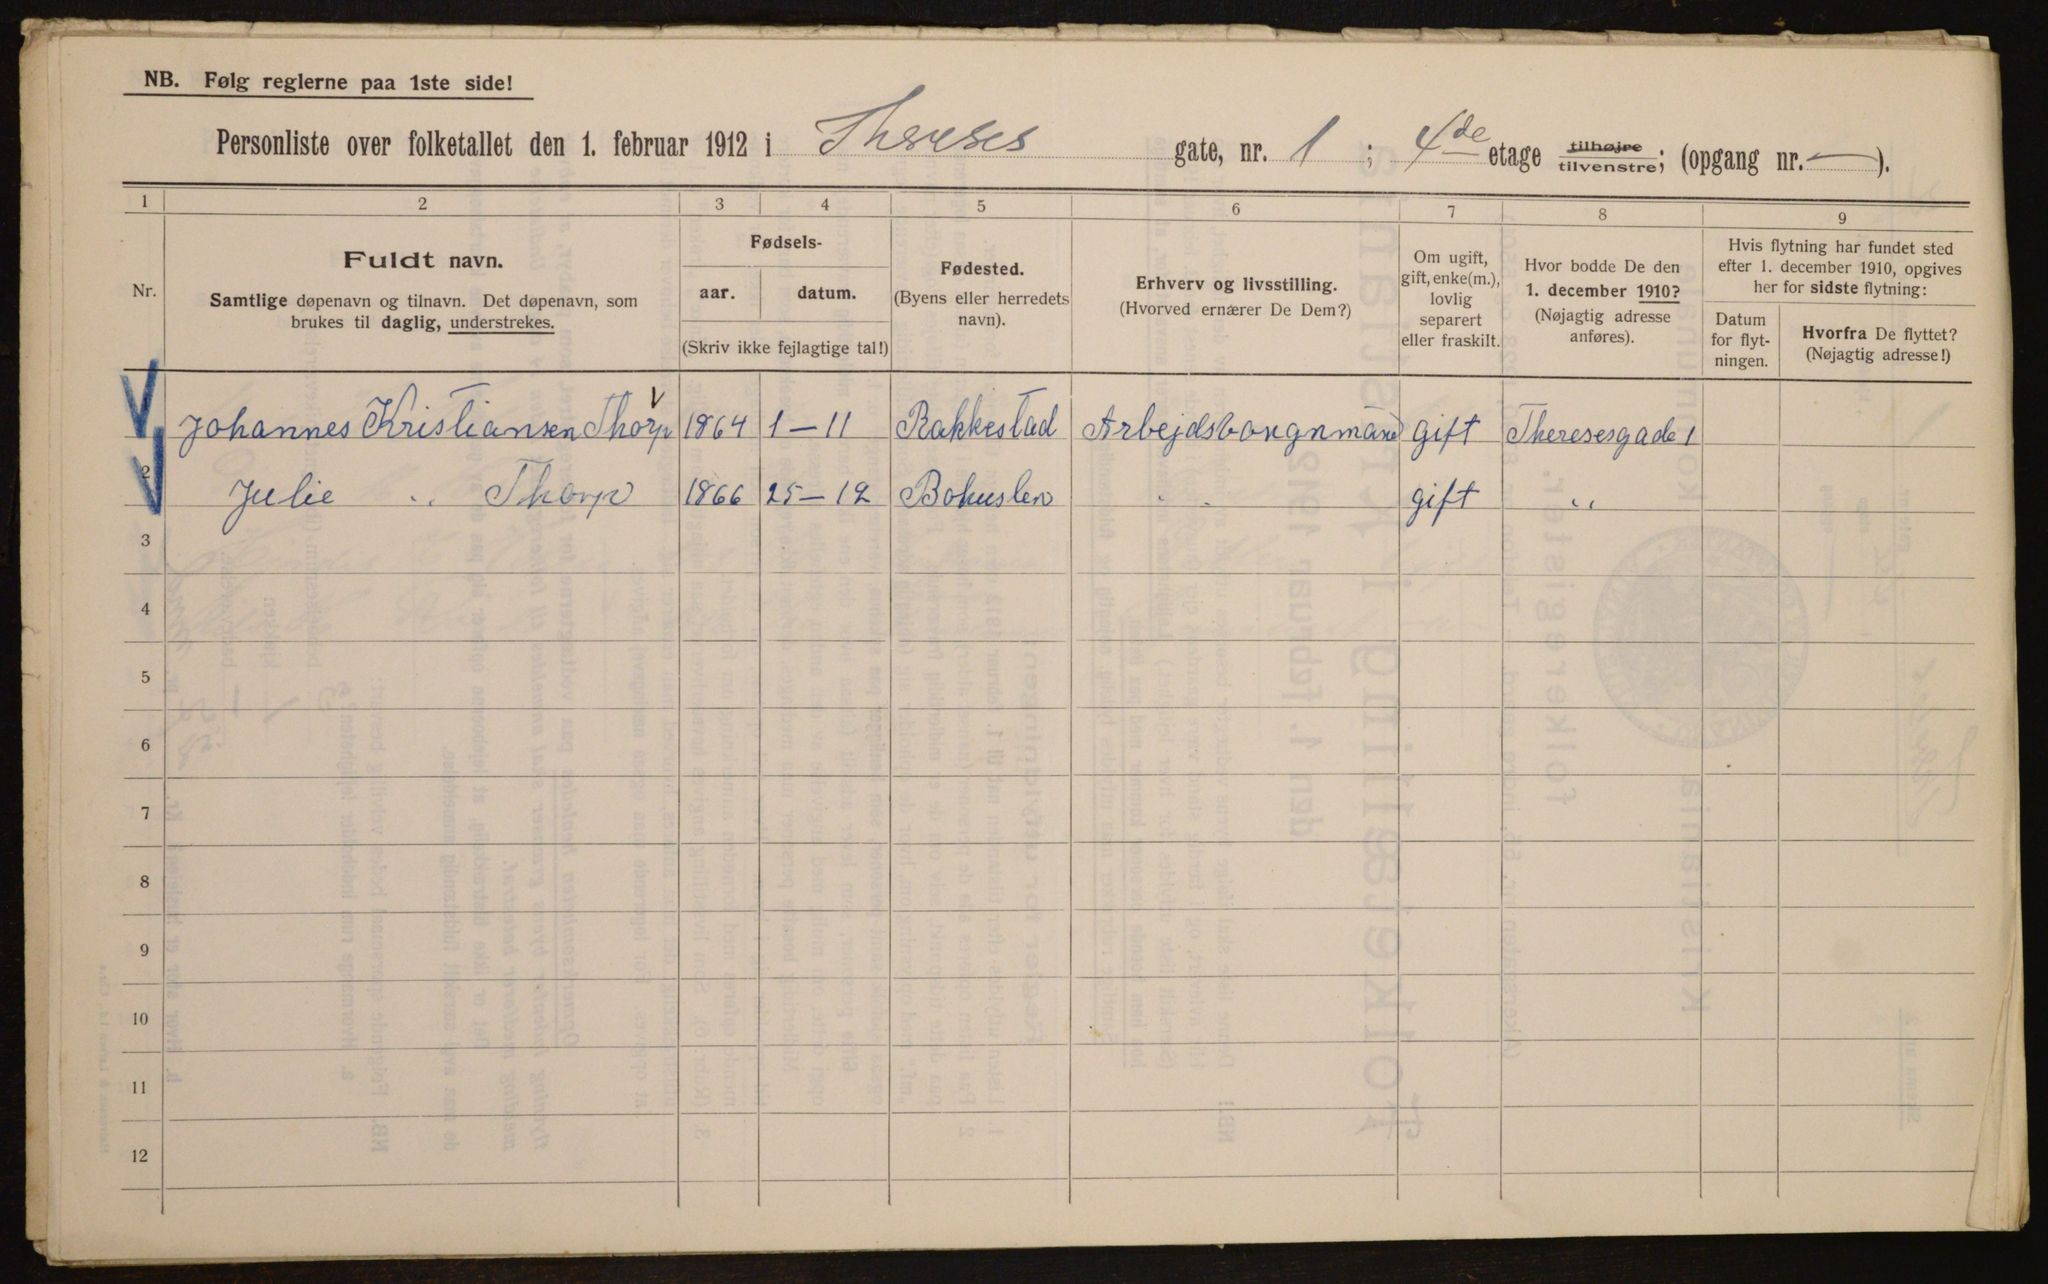 NB. Følg reglerne paa 1ste side!
Personliste over folketallet den 1. februar 1912 i Thereses gate, nr. 1 ; 4de etage tilhøjre tilvenstre; (opgang nr. — ).
1 2 3 4 5 6 7 8 9
Nr.
Fuldt navn.
Samtlige døpenavn og tilnavn. Det døpenavn, som
brukes til daglig, understrekes.
Fødsels-
aar. datum.
(Skriv ikke fejlagtige tal!)
Fødested.
(Byens eller herredets
navn).
Erhverv og livsstilling.
(Hvorved ernærer De Dem?)
Om ugift,
gift, enke(m.),
lovlig
separert
eller fraskilt.
Hvor bodde De den
1. december 1910?
(Nøjagtig adresse
anføres).
Hvis flytning har fundet sted
efter 1. december 1910, opgives
her for sidste flytning:
Datum
for flyt-
ningen.
Hvorfra De flyttet?
(Nøjagtig adresse!)
Johannes Kristiansen Thorp 1864 1-11 Rakkestad gift Theresesgade 1
2 Julie „ Thorp 1866 25-12 Bohuslen „ gift „
3
4
5
6
7
8
9
10
11
12